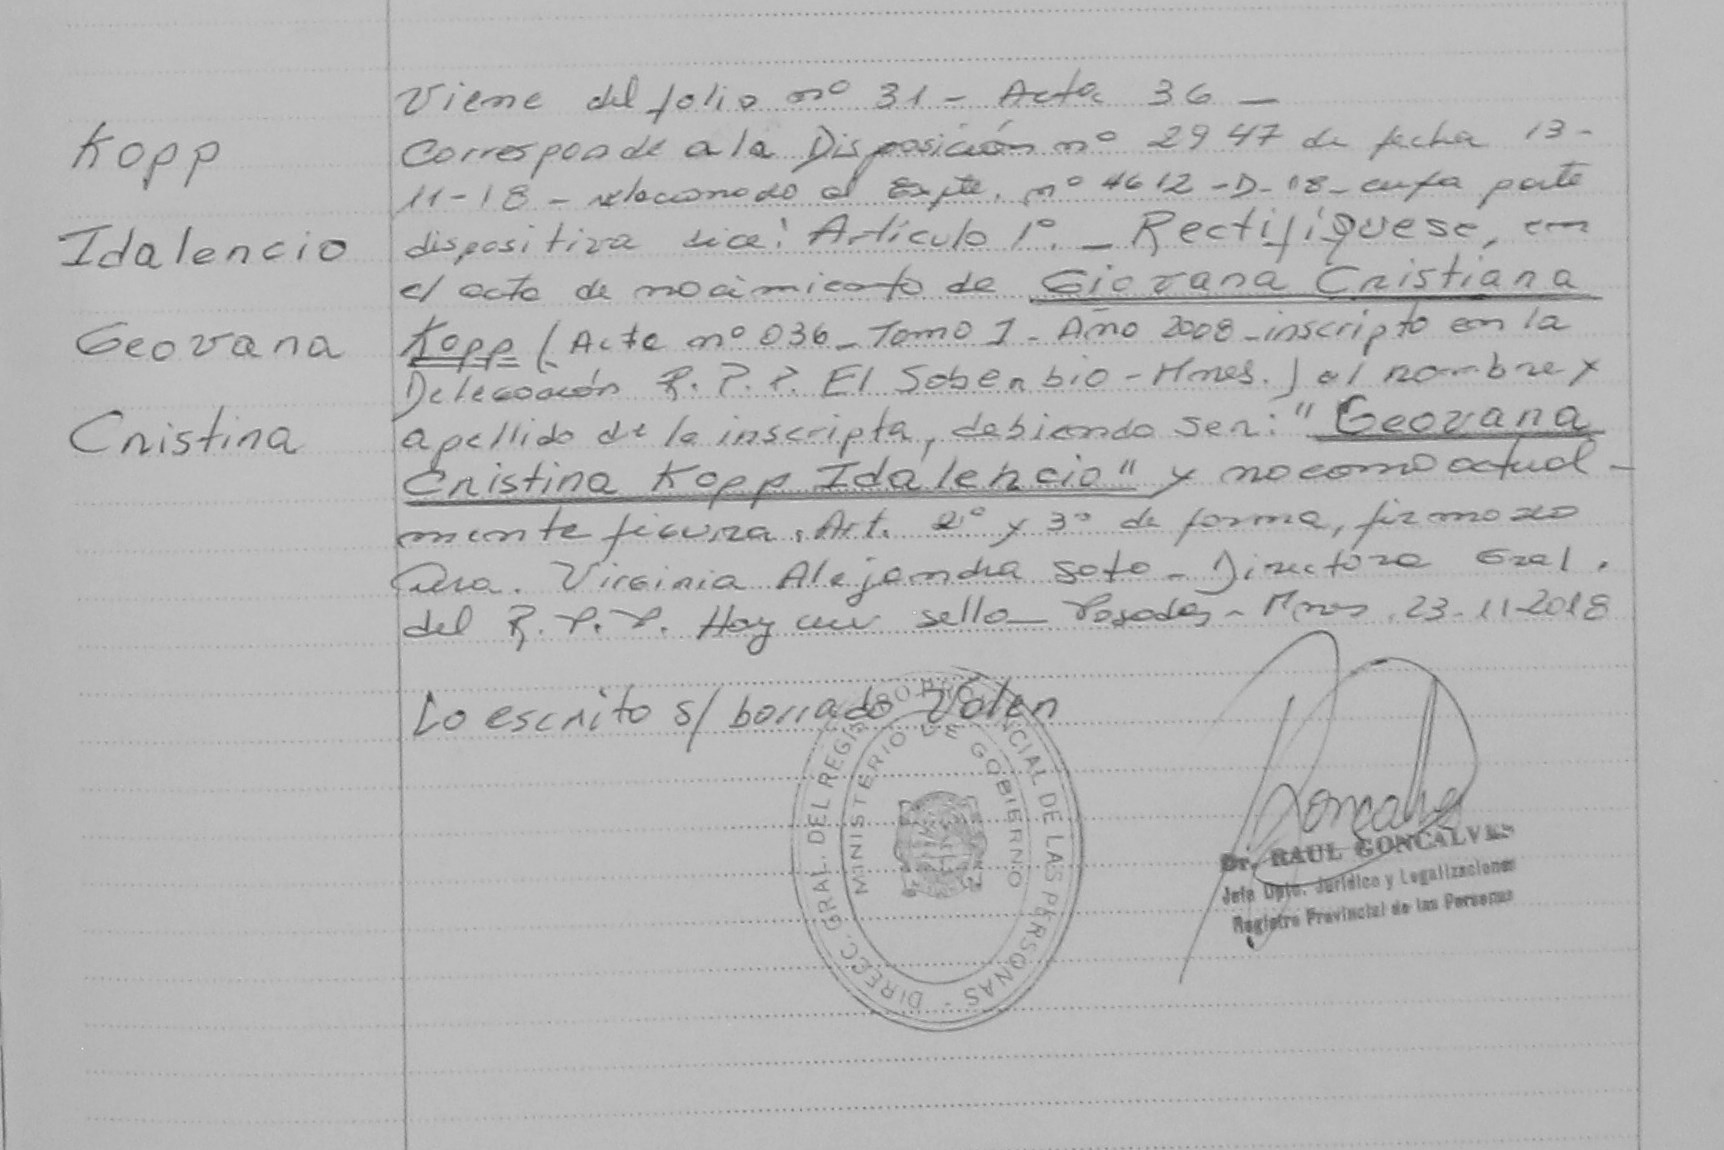 Kopp
Idalencio
Geovana
Cristina
Viene del folio nº 31 - Acta 36 -
Corresponde a la Disposición nº 2947 de fecha 13-
11-18 - relacionado al Expte. nº 4612-D-18- cuya parte
dispositiva dice: Artículo 1º. - Rectifíquese, en
el acta de nacimiento de Giovana Cristiana
Kopp (Acta nº 036 - Tomo I - Año 2008 - inscripto en la
Delegación R.P.P. El Soberbio - Mnes.) el nombre y
apellido de la inscripta, debiendo ser: "Geovana
Cristina Kopp Idalencio" y no como actual-
mente figura. Art. 2º y 3º de forma, firmado
Virginia Alejandra Soto - Directora Gral.
del R.P.P. Hay un sello - Posadas - Mnes. 23-11-2018
Lo escrito s/ borrado Valen
DIREC. GRAL. DEL REGISTRO PROVINCIAL DE LAS PERSONAS -
MINISTERIO DE GOBIERNO
Goncalves
Dr. RAUL GONCALVES
Jefe Dpto. Jurídico y Legalizaciones
Registro Provincial de las Personas